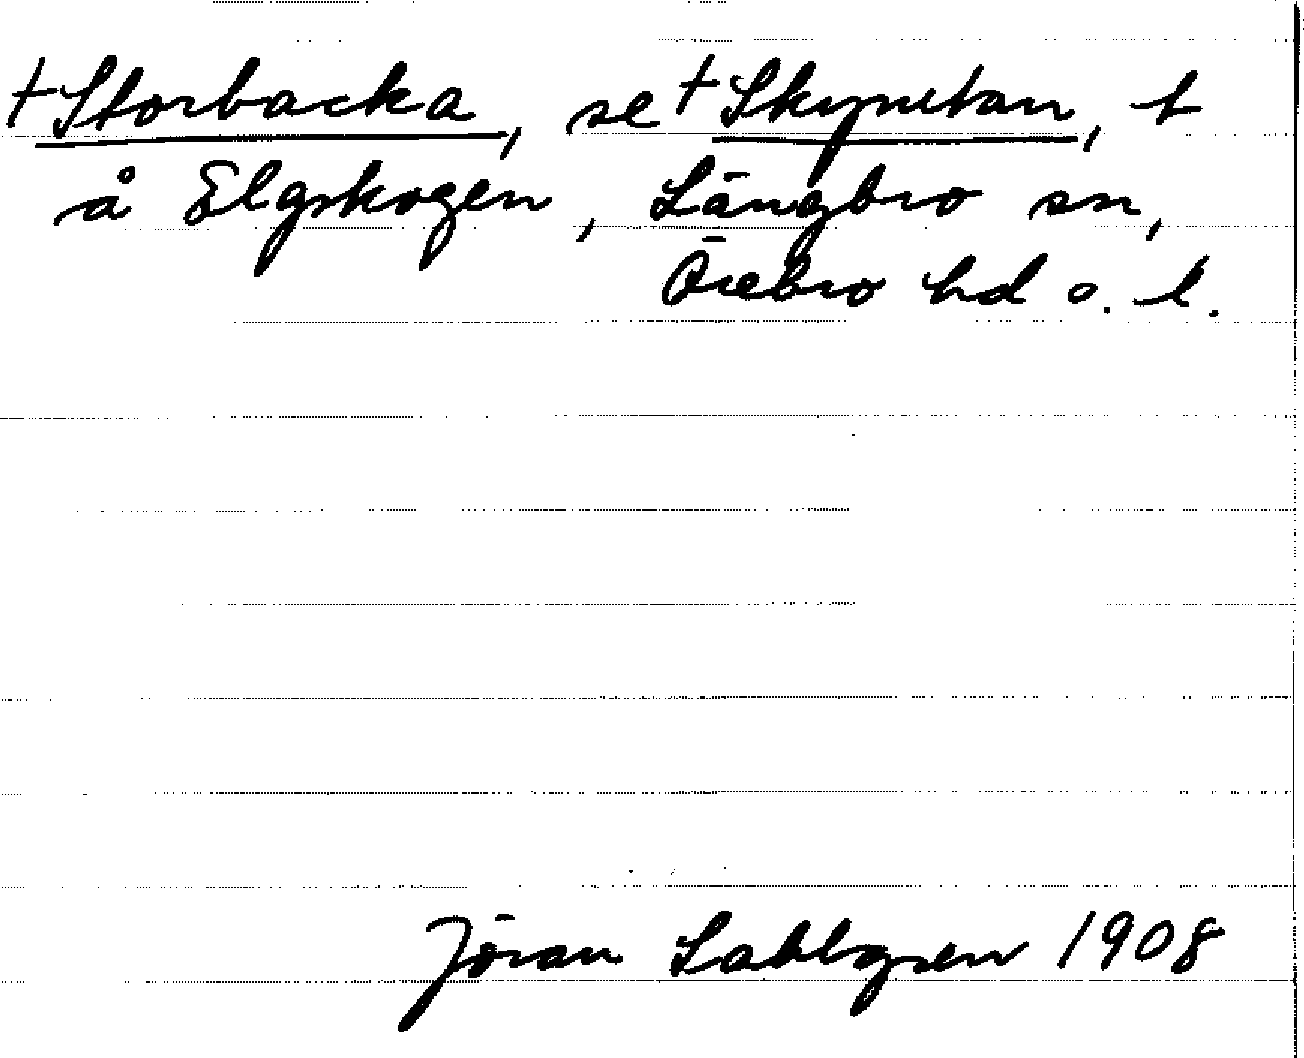 †Storbacka, se †Skymtan, t
å Elgskogen, Längbro sn,
Örebro hd o. l.
Jöran Sahlgren 1908